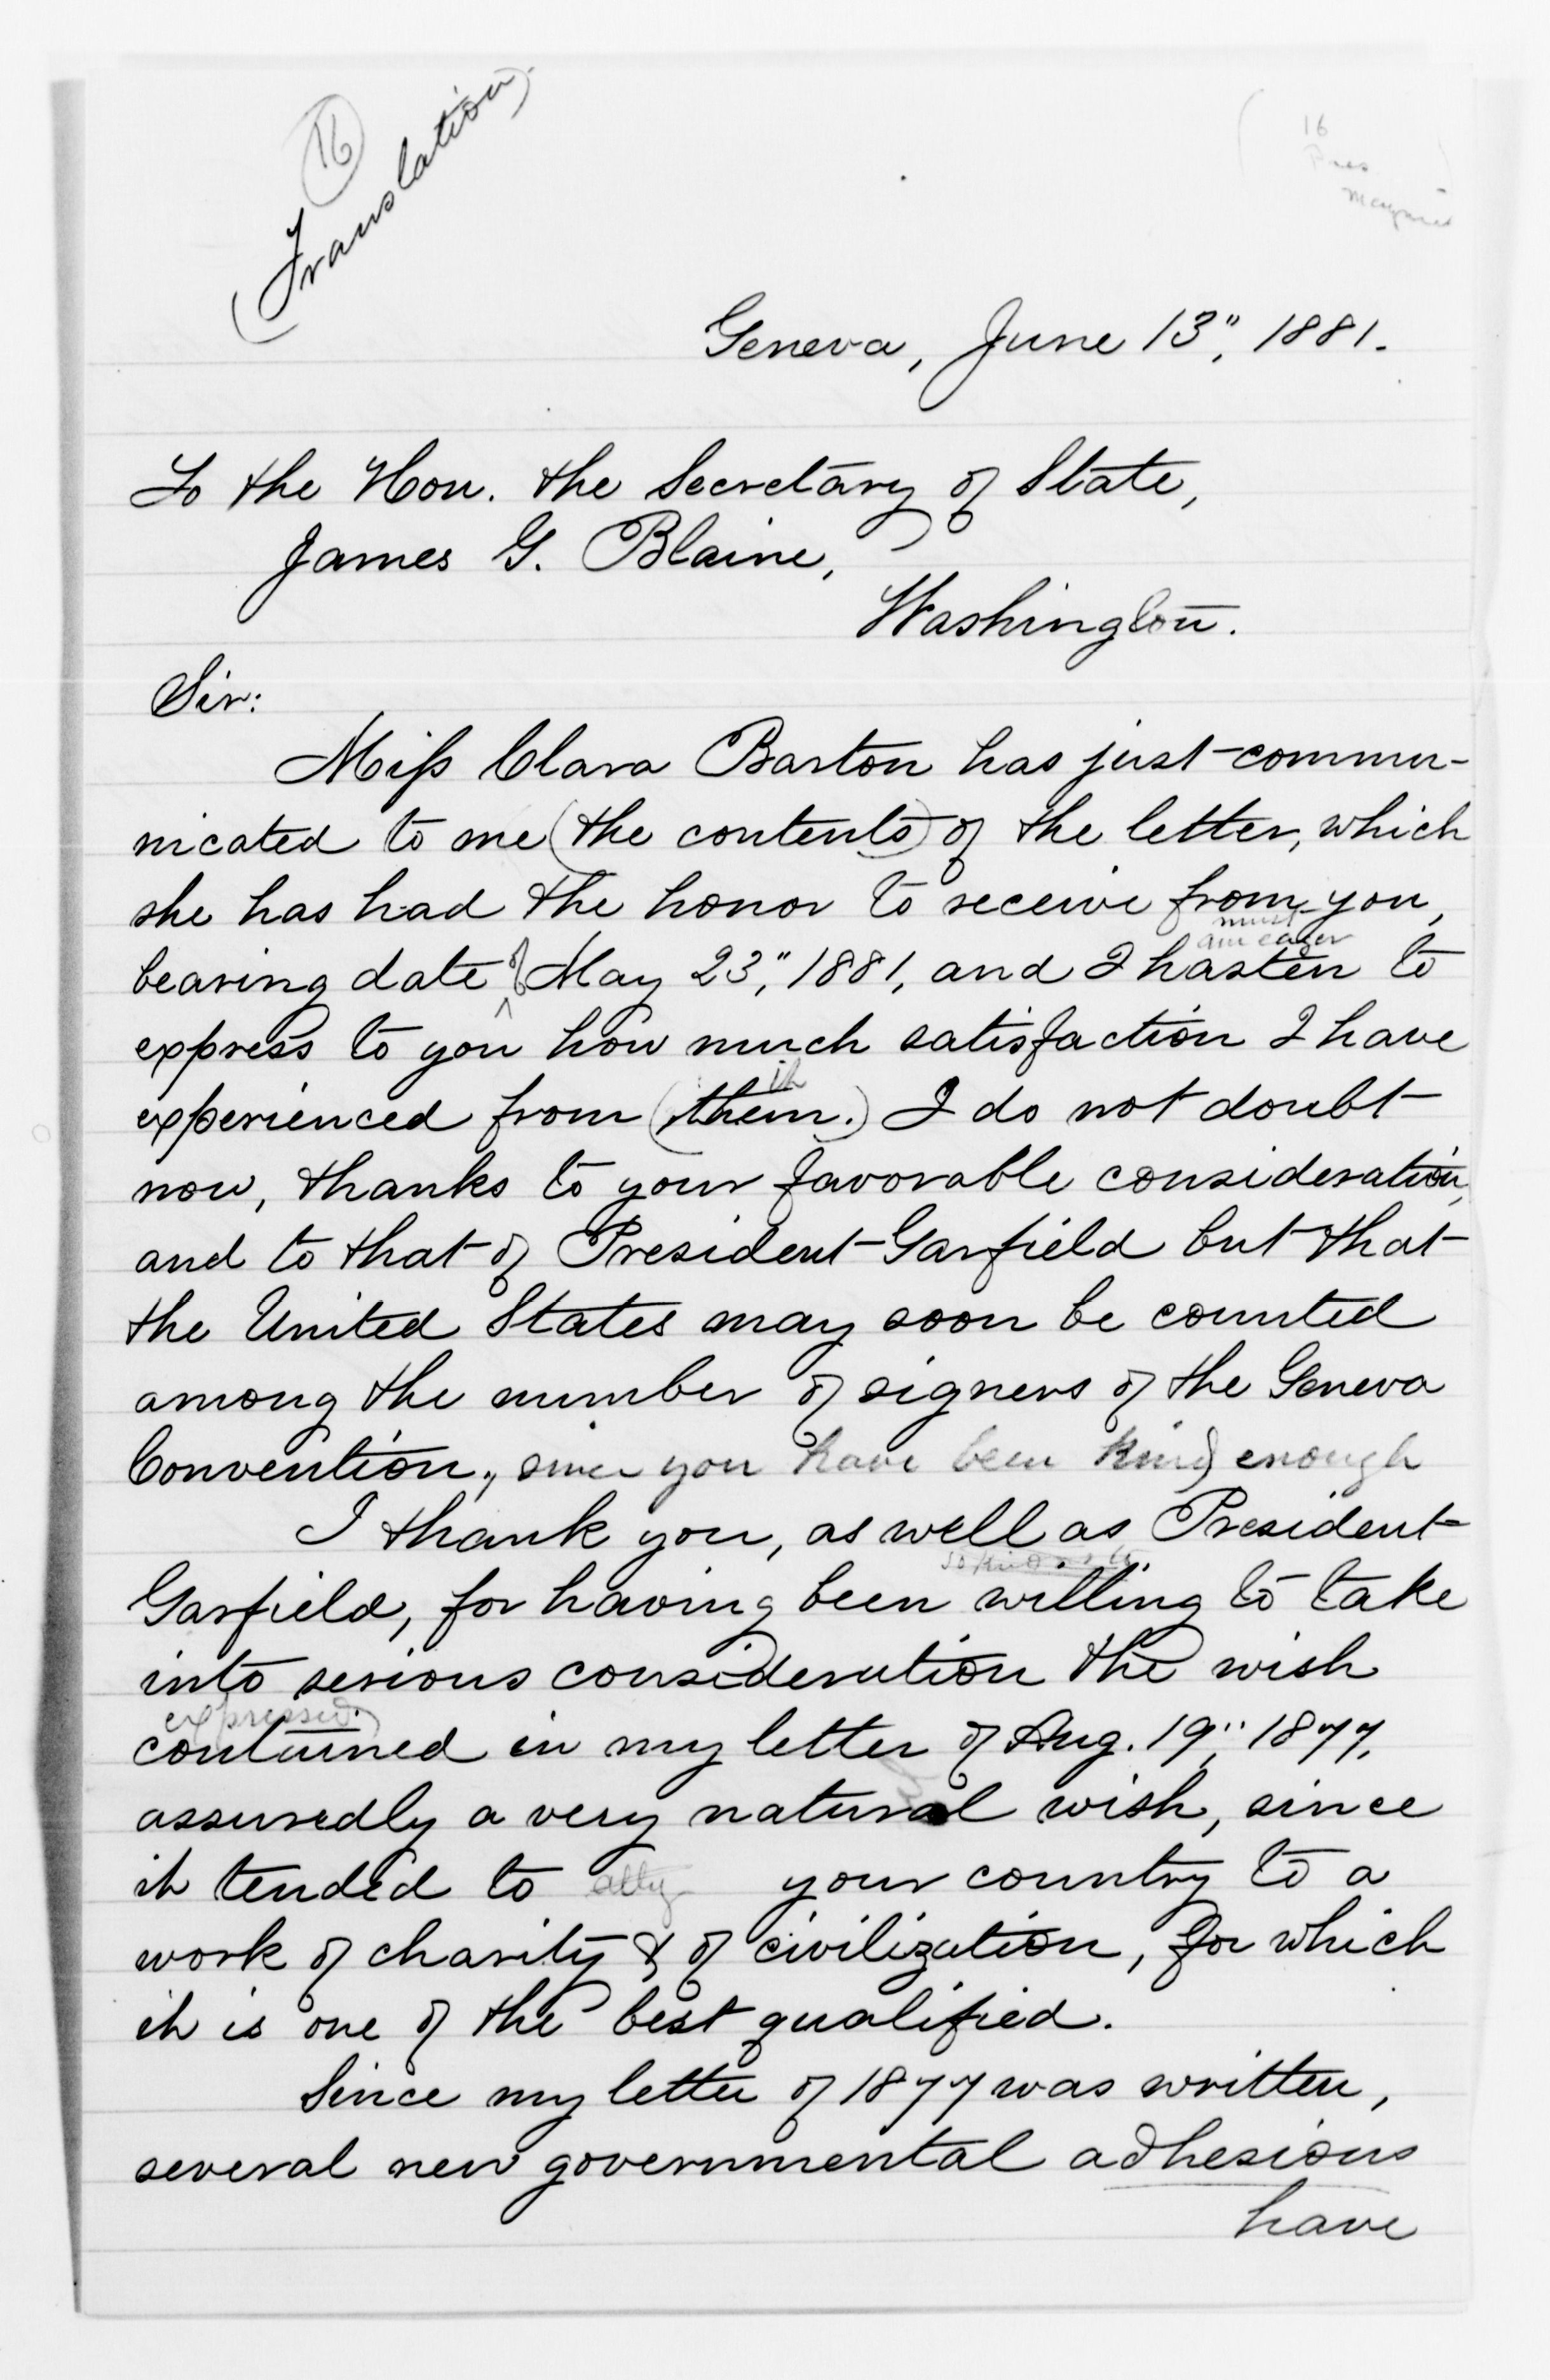 16
(Translation)
16
Geneva, June 13", 1881.
To the Hon. the Secretary of State,
James G. Blaine,
Washington.
Sir:
Miss Clara Barton has just commu-
nicated to me (the contents) of the letter, which
she has had the honor to receive from you,
must
am eager
bearing date of May 23", 1881, and I hasten to
express to you how much satisfaction I have
it
experienced from (them.) I do not doubt
now, thanks to your favorable consideration,
and to that of President Garfield but that
the United States may soon be counted
among the number of signers of the Geneva
Convention., since you have been kind enough
I thank you, as well as President
Garfield, for having been willing to take
into serious consideration the wish
expressed
contained in my letter of Aug. 19", 1877,
assuredly a very natural wish, since
it tended to your country to a
work of charity & of civilization, for which
it is one of the best qualified.
Since my letter of 1877 was written,
several new governmental adhesions
have